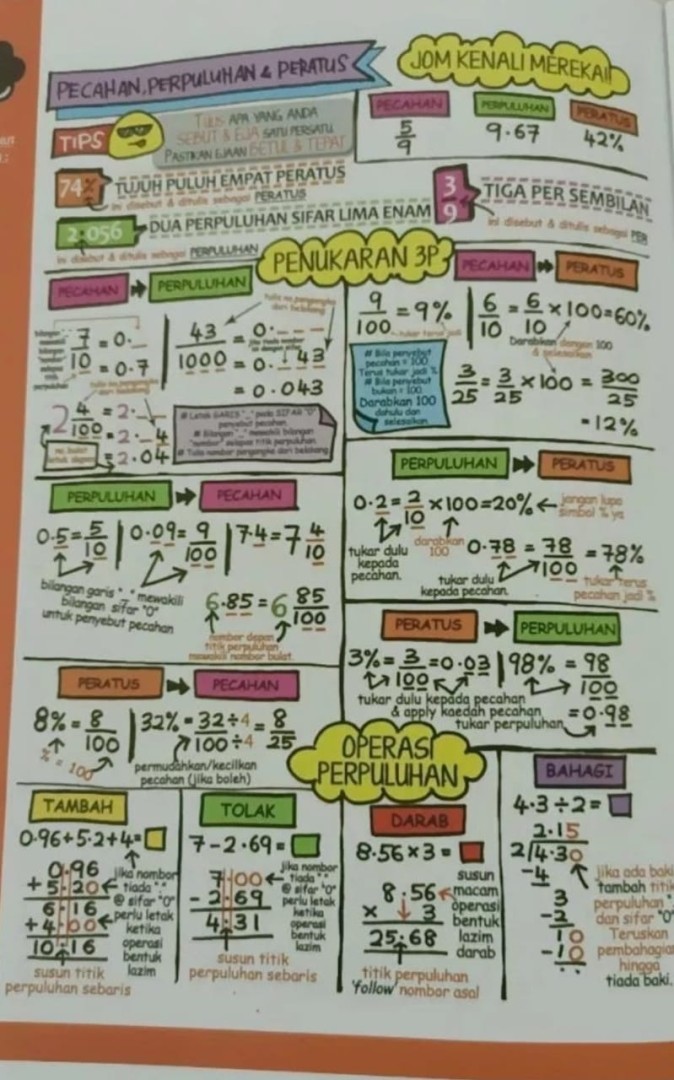 PECAHAN, PERPULUHAN & PERATUS
JOM KENALI MEREKA!!
TIPS
TULIS APA YANG ANDA
SEBUT & EJA SATU PERSATU
PASTIKAN EJAAN BETUL & TEPAT
PECAHAN
5/9
PERPULUHAN
9.67
PERATUS
42%
74% TUJUH PULUH EMPAT PERATUS
ini disebut & ditulis sebagai PERATUS
3/9 TIGA PER SEMBILAN
ini disebut & ditulis sebagai PER
2.056 DUA PERPULUHAN SIFAR LIMA ENAM
ini disebut & ditulis sebagai PERPULUHAN
PENUKARAN 3P
PECAHAN PERPULUHAN
7/10 = 0._
= 0.7
43/1000 = 0._ _ _
= 0._43
= 0.043
2 4/100 = 2._ _
= 2._4
= 2.04
# Letak GARIS "_" pada SIFAR "0"
penyebut pecahan.
# Bilangan "_" mewakili bilangan
"nombor" selepas titik perpuluhan.
# Tulis nombor pengangka dari belakang
PECAHAN PERATUS
9/100 = 9%
tukar terus jadi
6/10 = 6/10 × 100 = 60%
Darabkan dengan 100
& selesaikan
# Bila penyebut
pecahan = 100
Terus tukar jadi %
# Bila penyebut
bukan = 100
Darabkan 100
dahulu dan
selesaikan
3/25 = 3/25 × 100 = 300/25
= 12%
PERPULUHAN PECAHAN
0.5 = 5/10
0.09 = 9/100
7.4 = 7 4/10
bilangan garis "_" mewakili
bilangan sifar "0"
untuk penyebut pecahan
6.85 = 6 85/100
nombor depan
titik perpuluhan
mewakili nombor bulat
PERPULUHAN PERATUS
0.2 = 2/10 × 100 = 20% jangan lupa
simbol % ya
tukar dulu
kepada
pecahan.
darabkan
100
0.78 = 78/100 = 78%
tukar dulu
kepada pecahan
tukar terus
pecahan jadi %
PERATUS PERPULUHAN
3% = 3/100 = 0.03
98% = 98/100
= 0.98
tukar dulu kepada pecahan
& apply kaedah pecahan
tukar perpuluhan
PERATUS PECAHAN
8% = 8/100
% = 100
32% = 32÷4/100÷4 = 8/25
permudahkan/kecilkan
pecahan (jika boleh)
OPERASI
PERPULUHAN
TAMBAH
0.96+5.2+4=
0.96
+ 5.20
6.16
+ 4.00
10.16
jika nombor
tiada "."
@ sifar "0"
perlu letak
ketika
operasi
bentuk
lazim
susun titik
perpuluhan sebaris
TOLAK
7-2.69=
7.00
- 2.69
4.31
jika nombor
tiada "."
@ sifar "0"
perlu letak
ketika
operasi
bentuk
lazim
susun titik
perpuluhan sebaris
DARAB
8.56×3=
8.56
× 3
25.68
susun
macam
operasi
bentuk
lazim
darab
titik perpuluhan
'follow' nombor asal
BAHAGI
4.3÷2=
2.15
2/4.30
-4
3
-2
10
-10
jika ada baki
tambah titik
perpuluhan
dan sifar "0"
Teruskan
pembahagian
hingga
tiada baki.